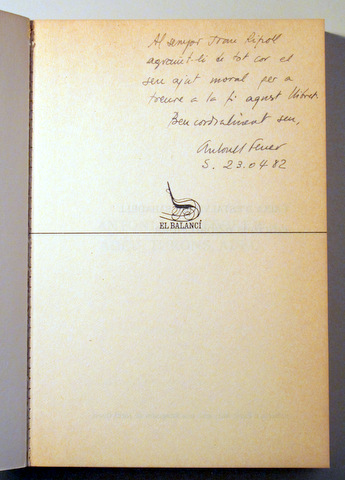 Al senyor Joan Ripoll
agraint-li de tot cor el
seu ajut moral per a
treure a la fi aquest llibret.
Ben cordialment seu,
Antonell Ferrer
S. 23.04.82
EL BALANCÍ